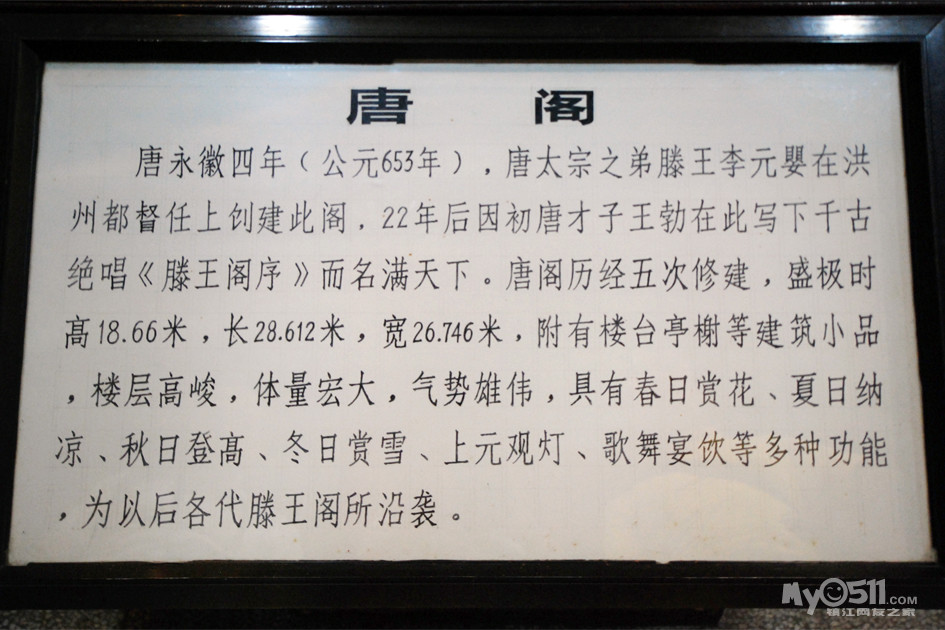 唐 阁
唐永徽四年（公元653年），唐太宗之弟滕王李元婴在洪
州都督任上创建此阁，22年后因初唐才子王勃在此写下千古
绝唱《滕王阁序》而名满天下。唐阁历经五次修建，盛极时
高18.66米，长28.612米，宽26.746米，附有楼台亭榭等建筑小品
，楼层高峻，体量宏大，气势雄伟，具有春日赏花、夏日纳
凉、秋日登高、冬日赏雪、上元观灯、歌舞宴饮等多种功能
，为以后各代滕王阁所沿袭。
My0511.COM
镇江网友之家